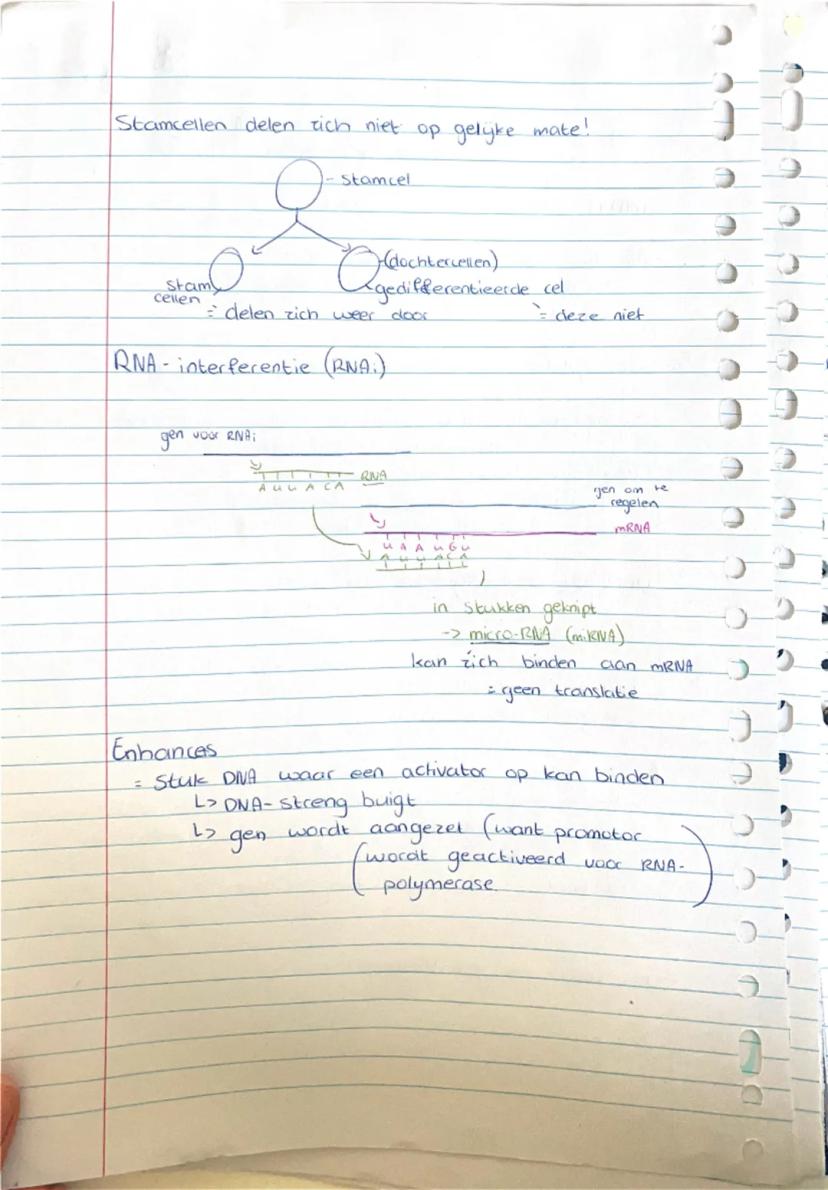 Stamcellen delen zich niet op gelijke mate!
- stamcel
(dochtercellen)
stam
cellen
gedifferentieerde cel
= delen zich weer door
= deze niet
RNA-interferentie (RNAi)
gen voor RNAi
RNA
A U U A C A
gen om te
regelen
mRNA
U A A U G U
A U U A C A
in stukken geknipt
-> micro-RNA (miRNA)
kan zich binden aan mRNA
= geen translatie
Enhances
= Stuk DNA waar een activator op kan binden
↳ DNA-streng buigt
↳ gen wordt aangezet (want promotor
wordt geactiveerd voor RNA-
polymerase)